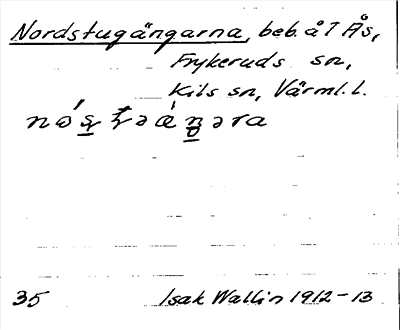 Nordstugängarna, beb. å 7 Ås,
Frykeruds sn,
Kils sn, Värml. l.
35 Isak Wallin 1912-13